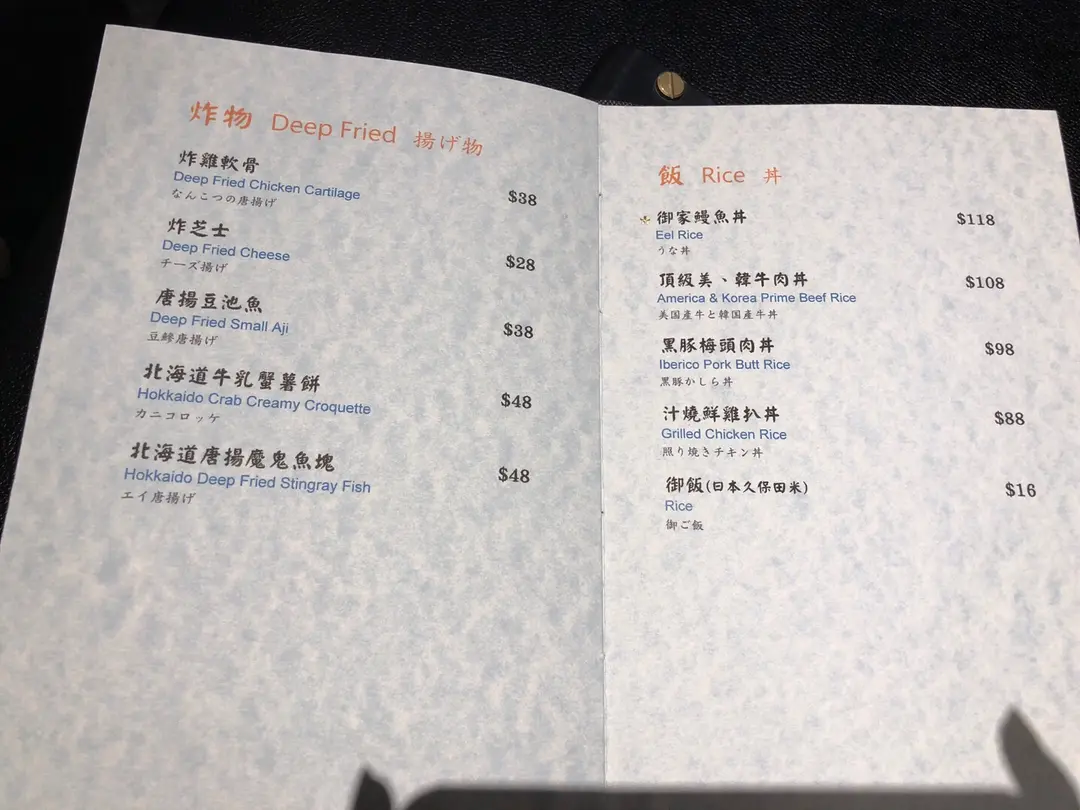 炸物 Deep Fried 揚げ物
炸雞軟骨
Deep Fried Chicken Cartilage
なんこつの唐揚げ
$38
炸芝士
Deep Fried Cheese
チーズ揚げ
$28
唐揚豆池魚
Deep Fried Small Aji
豆鯵唐揚げ
$38
北海道牛乳蟹薯餅
Hokkaido Crab Creamy Croquette
カニコロッケ
$48
北海道唐揚魔鬼魚塊
Hokkaido Deep Fried Stingray Fish
エイ唐揚げ
$48
飯 Rice 丼
御家鰻魚丼
Eel Rice
うな丼
$118
頂級美、韓牛肉丼
America & Korea Prime Beef Rice
美国産牛と韓国産牛丼
$108
黑豚梅頭肉丼
Iberico Pork Butt Rice
黒豚かしら丼
$98
汁燒鮮雞扒丼
Grilled Chicken Rice
照り焼きチキン丼
$88
御飯(日本久保田米)
Rice
御ご飯
$16